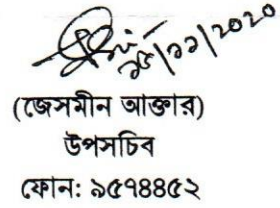 ১৫/১১/২০২০
(জেসমীন আক্তার)
উপসচিব
ফোন: ৯৫৭৪৪৫২